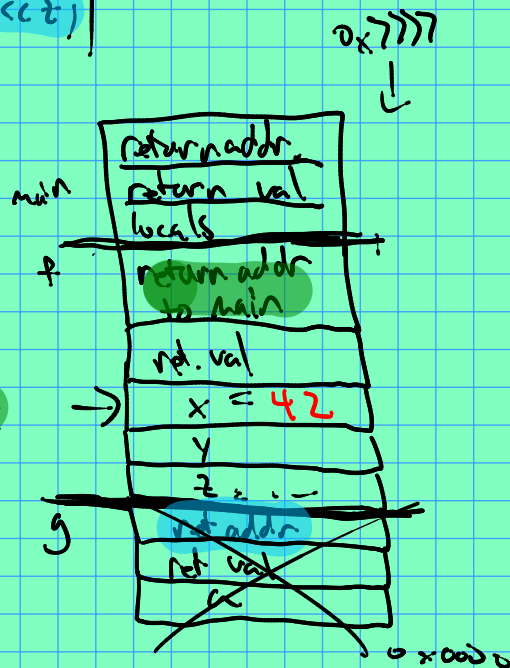 << z)
return addr.
main
return val
locals
f
return addr
to main
ret. val
x = 42
y
z . . -
g
ret addr
ret val
0x0000